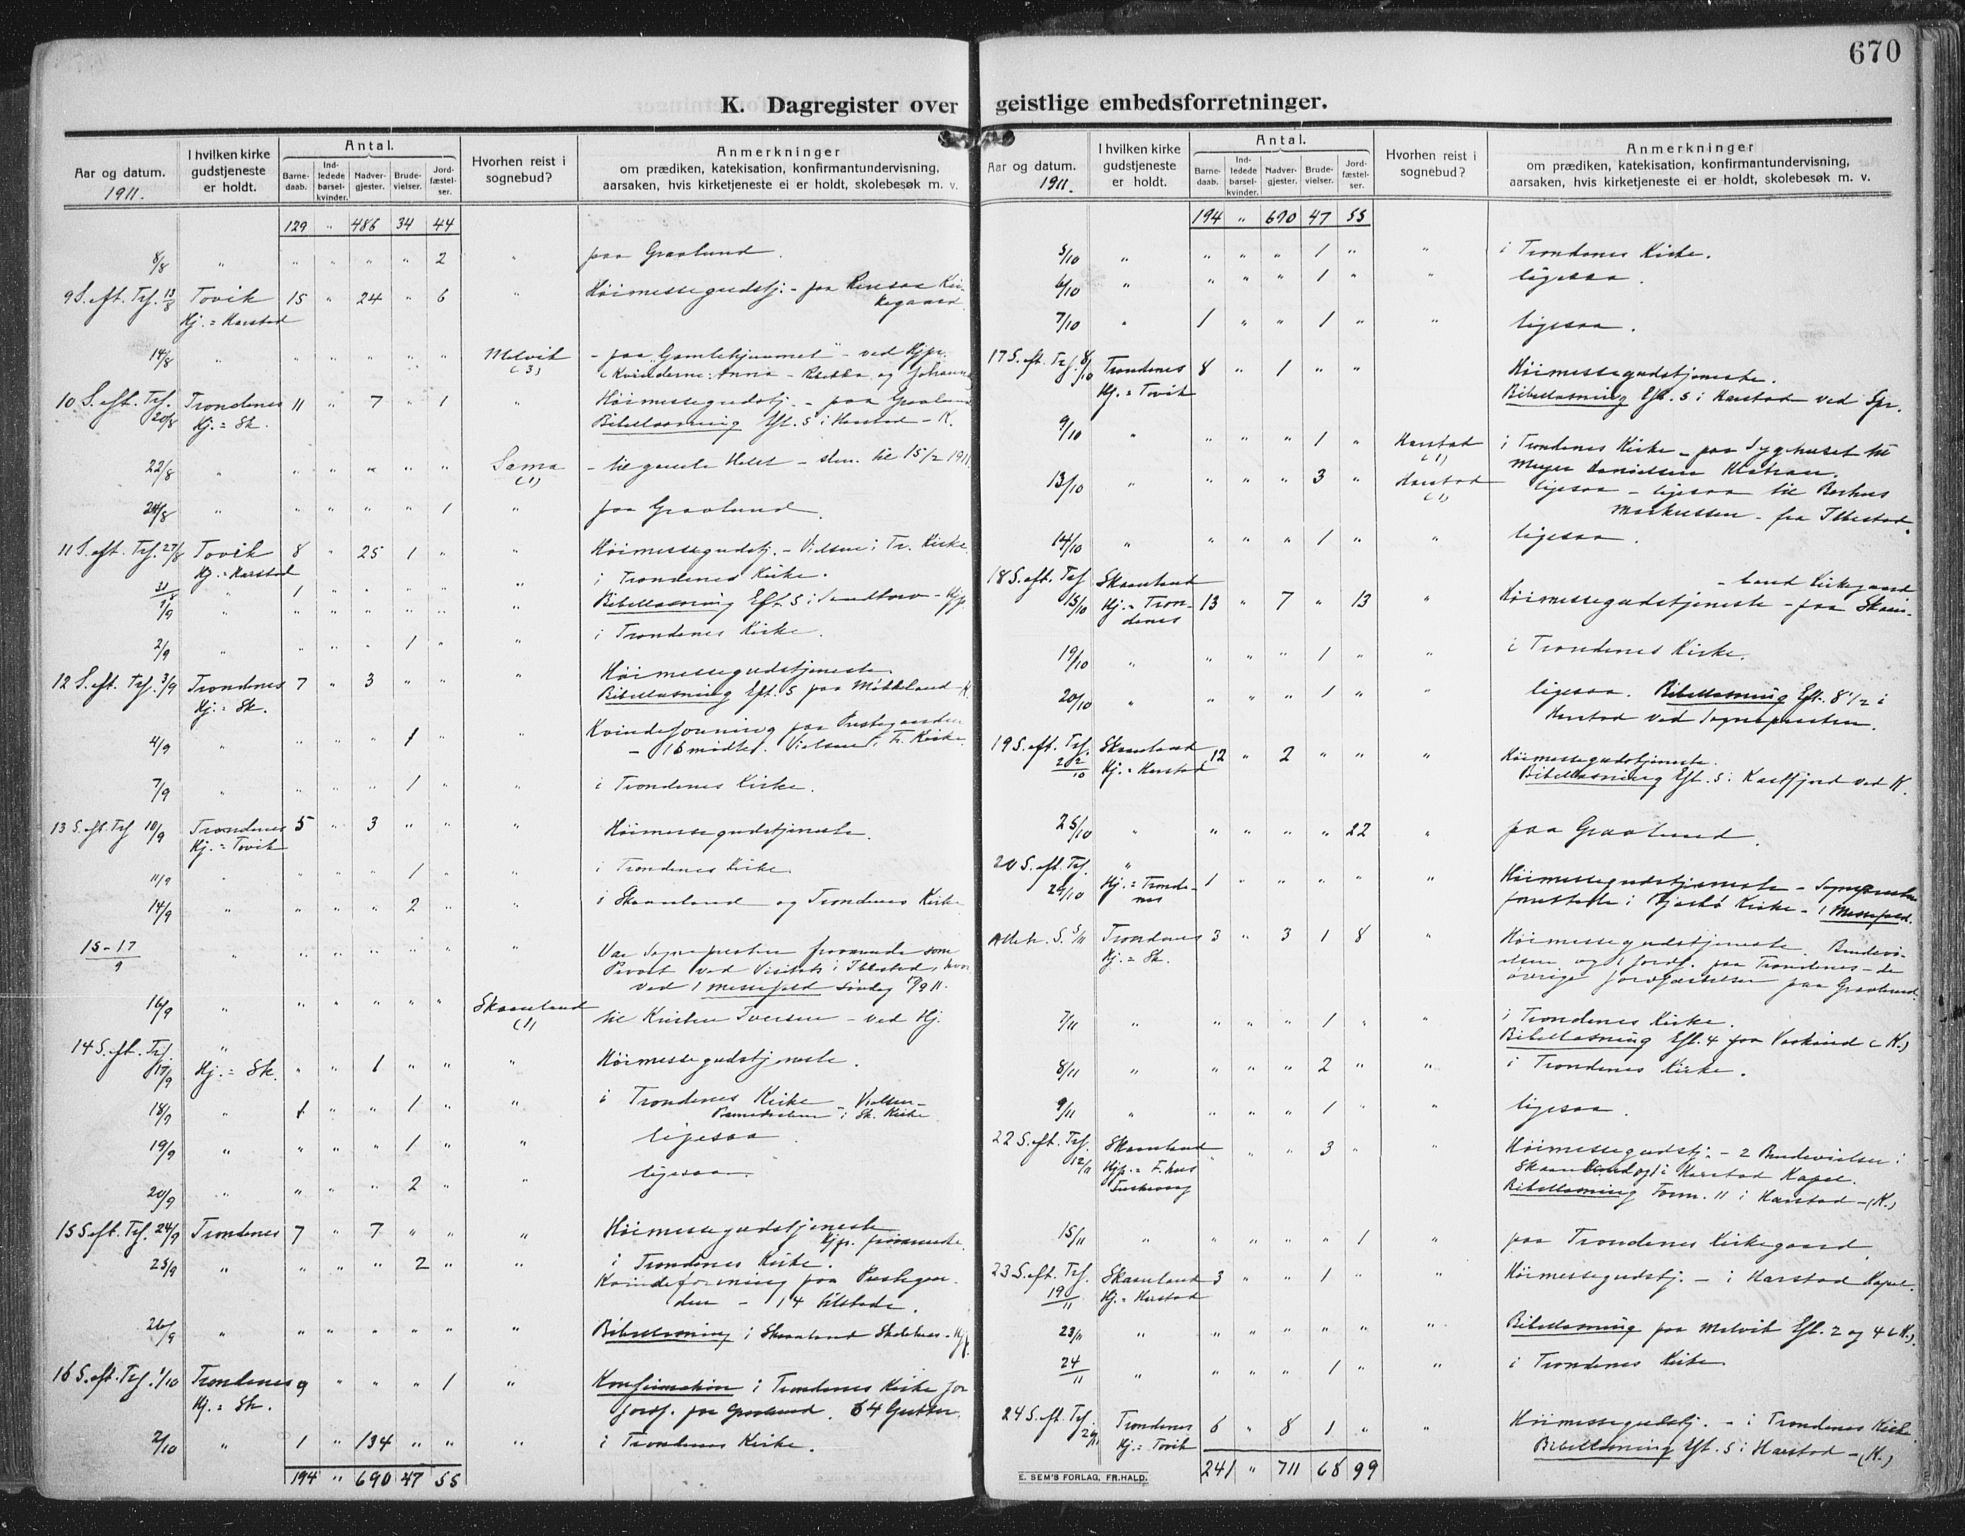 670
K. Dagregister over geistlige embedsforretninger.
Aar og datum. 1911.
I hvilken kirke gudstjeneste er holdt.
Antal.
Barne-daab.
Ind-ledede barsel-kvinder.
Nadver-gjester.
Brude-vielser.
Jord-fæstel-ser.
Hvorhen reist i sognebud?
Anmerkninger
om prædiken, katekisation, konfirmantundervisning,
aarsaken, hvis kirketjeneste ei er holdt, skolebesøk m. v.
129 " 486 34 44
8/8 " " " " " 2 " paa Gravlund.
9 S. eft. Trf. 13/8 Tovik 15 " 24 " 6 " Höimessegudstj. - paa
Hj. = Harstad kegaard
14/8 " " " " " " Melvik - paa "Gamlehjemmet" - ved Hjpr.
(3) Kvinderne: Anna - Rebekka og Johanna
10 S. eft. Trf. 20/8 Trondenes 11 " 7 " 1 " Höimessegudstj. - paa Gravlund
Hj. = Sk. Bibellæsning Eft. 5 i Harstad - K.
22/8 " " " " " " Sama - til gamle - den. til 15/2 1911
(1)
24/8 " " " " " 1 " paa Gravlund.
11 S. eft. Trf. 27/8 Tovik 8 " 25 1 " " Höimessegudstj. - Vielsen i Tr. Kirke.
Hj. = Harstad
31/8 " 1 " " " " " i Trondenes Kirke.
1/9 " Bibellæsning Eft. 5 i Sandtorv - Hjp.
2/9 " " " " 1 " " i Trondenes Kirke.
12 S. eft. Trf. 3/9 Trondenes 7 " 3 " " " Höimessegudstjeneste
Hj. = Sk. Bibellæsning Eft. 5 paa Møkkeland - K.
4/9 " " " " 1 " " Kvindeforening paa Prestegaarden
- 16 mødte. Vielsen i Tr. Kirke.
7/9 " " " " 1 " " i Trondenes Kirke.
13 S. eft. Trf 10/9 Trondenes 5 " 3 " " " Höimessegudstjeneste.
Hj. = Tovik
11/9 " " " " 1 " " i Trondenes Kirke
14/9 " " " " 2 " " i Skaanland og Trondenes Kirke
15-17/9 " " " " " " " Var Sognepresten fraværende som
Provst ved Visitats i Ibbestad, hvor
ved 1 messefald Söndag 17/9 11.
16/9 " " " " " " Skaanland til Kristen Iversen - ved Hj.
(1)
14 S. eft. Trf. 17/9 " " " 1 " " " Höimessegudstjeneste.
Hj. = Sk.
18/9 " 1 " " 1 " " i Trondenes Kirke - Vielsen
i Sk. Kirke
19/9 " " " " 1 " " ligesaa.
20/9 " " " " 2 " " ligesaa
15 S eft. Trf. 24/9 Trondenes 7 " 7 " " " Höimessegudstjeneste
Hjp. fraværende.
25/9 " " " " 2 " " i Trondenes Kirke.
Kvindeforening paa Prestegaar-
den - 14 tilstede.
26/9 " " " " " " " Bibellæsning i Skaanland Skolehus - Hjp.
16 S. eft. Trf. 1/10 Trondenes 9 " " " 1 " Konfirmation i Trondenes Kirke
Hj. = Sk. Jordf. paa Gravlund. 64 Gutter.
2/10 " 1 " 134 " " " i Trondenes Kirke.
194 " 690 47 55
Aar og datum. 1911.
I hvilken kirke gudstjeneste er holdt.
Antal.
Barne-daab.
Ind-ledede barsel-kvinder.
Nadver-gjester.
Brude-vielser.
Jord-fæstel-ser.
Hvorhen reist i sognebud?
Anmerkninger
om prædiken, katekisation, konfirmantundervisning,
aarsaken, hvis kirketjeneste ei er holdt, skolebesøk m. v.
194 " 690 47 55
5/10 " " " " 1 " " i Trondenes Kirke.
6/10 " " " " 1 " " ligesaa.
7/10 " 1 " " 1 " " ligesaa.
17 S. eft. Trf. 8/10 Trondenes 8 " 1 " " Höimessegudstjeneste.
Hj. = Tovik Bibellæsning Eft. 5 i Harstad ved Spr.
9/10 " " " " 1 " Harstad i Trondenes Kirke - paa Sygehuset til
(1) Meyer Danielsen
13/10 " " " " 3 " Harstad ligesaa - ligesaa til
(1) Markussen - fra Ibbestad.
14/10 " " " " 1 " " ligesaa.
18 S. eft. Trf Skaanland - land Kirkegaard
15/10 Hj. = Tron- 13 " 7 " 13 " Höimessegudstjeneste - paa Skaan-
denes
19/10 " " " " 1 " " i Trondenes Kirke.
20/10 " " " " 1 " " ligesaa. Bibellæsning Eft. 8 1/2 i
Harstad ved Sognepresten.
19 S. eft. Trf. 22/10 Skaanland 12 " 2 " " " Höimessegudstjeneste.
Hj. = Harstad Bibellæsning Eft. 5 i Kasfjord ved K.
25/10 " " " " " 22 " paa Gravlund.
20 S. eft. Trf. "
29/10 Hj. = Tronde- 1 " " " " " Höimessegudstjeneste - Sognepresten
nes i Kirke - 1 Messefald.
Alleh. S. 5/11 Trondenes 3 " 3 1 8 Höimessegudstjeneste. Brudevi-
Hj. = Sk. elsen og 1 Jordf. paa Trondenes - de
övrige Jordfæstelser paa Gravlund.
7/11 " " " " 1 " " i Trondenes Kirke.
Bibellæsning Eft. 4 paa (K.)
8/11 " " " " 2 " " i Trondenes Kirke.
9/11 " " " " 1 " " ligesaa.
22 S. eft. Trf. 12/11 Skaanland " " " 3 " " Höimessegudstj. - 2 Brudevielser i
Hjp. = F. hus Skaanland og i Harstad Kapel.
Bibellæsning Form. 11 i Harstad - (K.)
15/11 " " " " " 1 " paa Trondenes Kirkegaard.
23 S. eft. Trf. 19/11 Skaanland 3 " " 1 " " Höimessegudstj. - i Harstad Kapel.
Hj. = Harstad
23/11 " " " " " " " Bibellæsning paa Melvik Eft. 2 og 4 (K.)
24/11 " " " " 1 " " i Trondenes Kirke
24 S. eft. Trf. 26/11 Trondenes 6 " 8 1 " " Höimessegudstj. - i Trondenes Kirke
Hj. = Tovik Bibellæsning Eft. 5 i Harstad - (K.)
241 " 711 68 99
E. SEM'S FORLAG, FR.HALD.